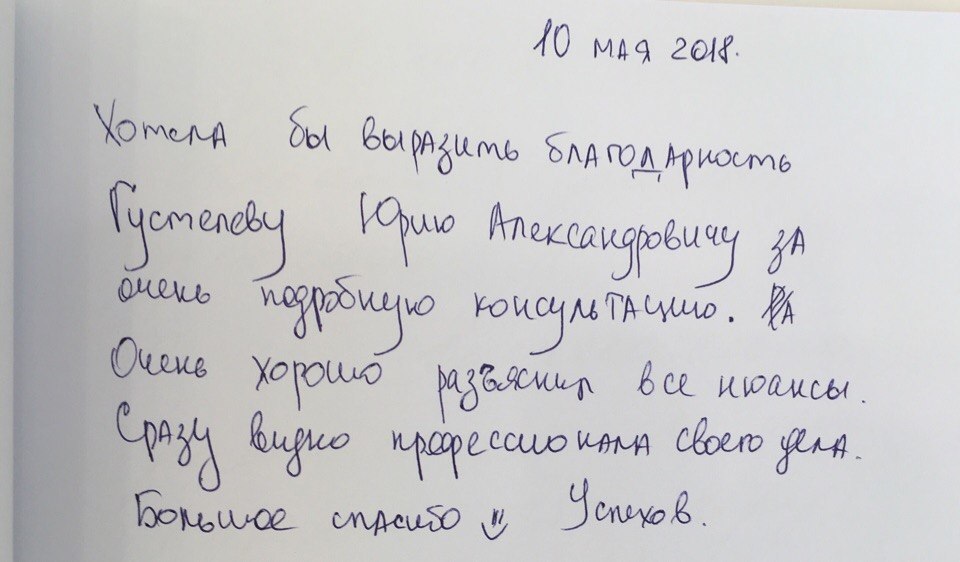 10 мая 2018.
Хотела бы выразить благодарность
Густелеву Юрию Александровичу за
очень подробную консультацию.
Очень хорошо разъяснил все нюансы.
Сразу видно профессионала своего дела.
Большое спасибо Успехов.